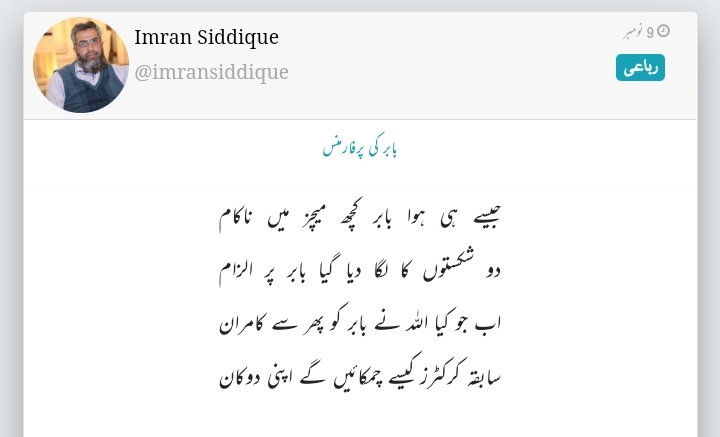 Imran Siddique
9 نومبر
@imransiddique
رباعی
بابر کی پرفارمنس
جیسے ہی ہوا بابر کچھ میچز میں ناکام
دو شکستوں کا لگا دیا گیا بابر پر الزام
اب جو کیا اللہ نے بابر کو پھر سے کامران
سابقہ کرکٹرز کیسے چمکائیں گے اپنی دوکان